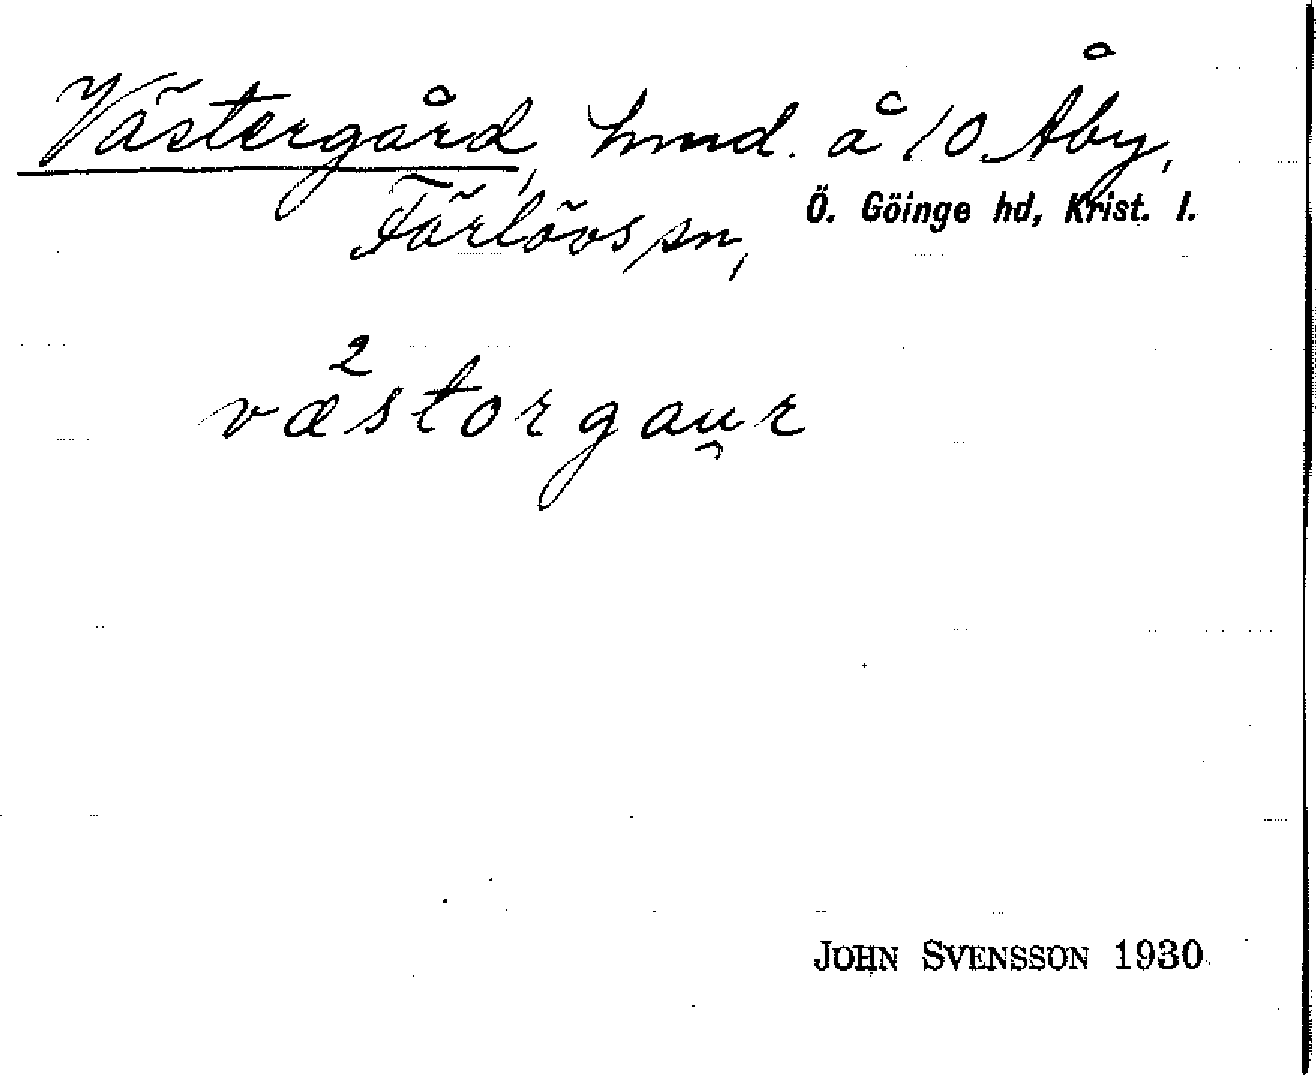 Västergård, hmd. å 10 Åby,
Färlövs sn, Ö. Göinge hd, Krist. l.
2
västorgau̯r
JOHN SVENSSON 1930